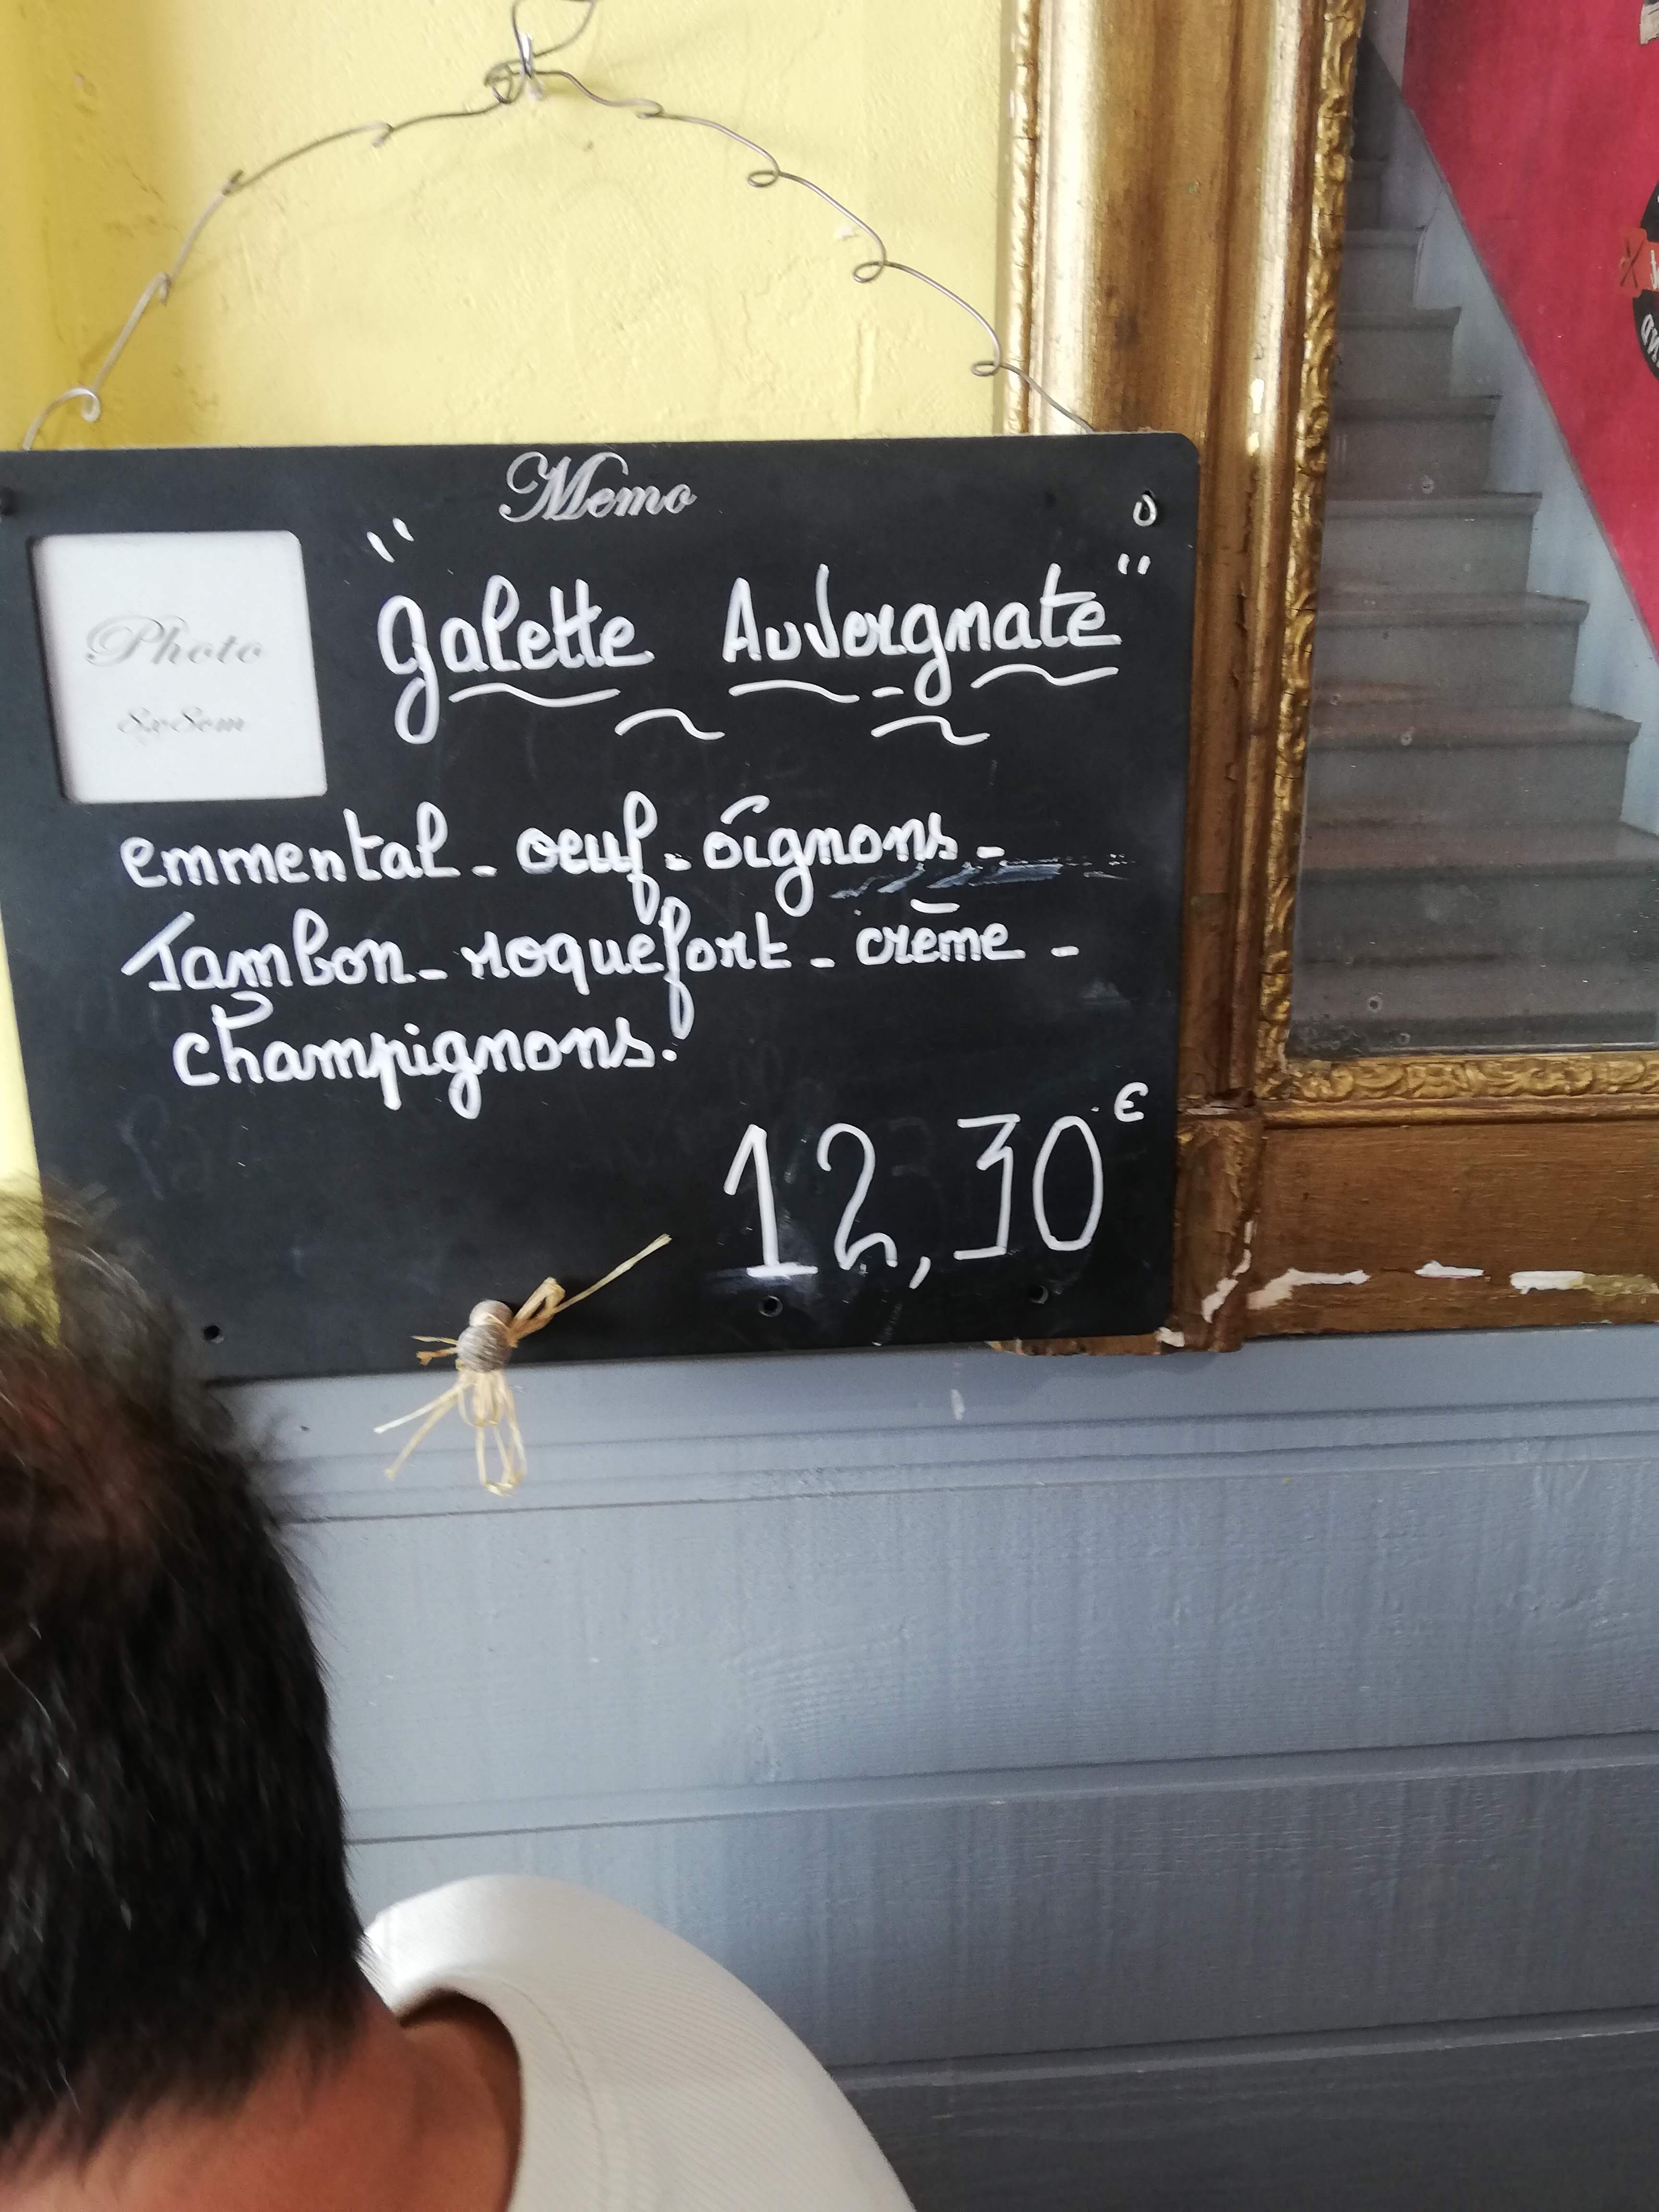 Memo
"Galette Auvergnate"
Photo
8x8cm
emmental - oeuf - oignons -
Jambon - roquefort - crème -
champignons.
12,30€